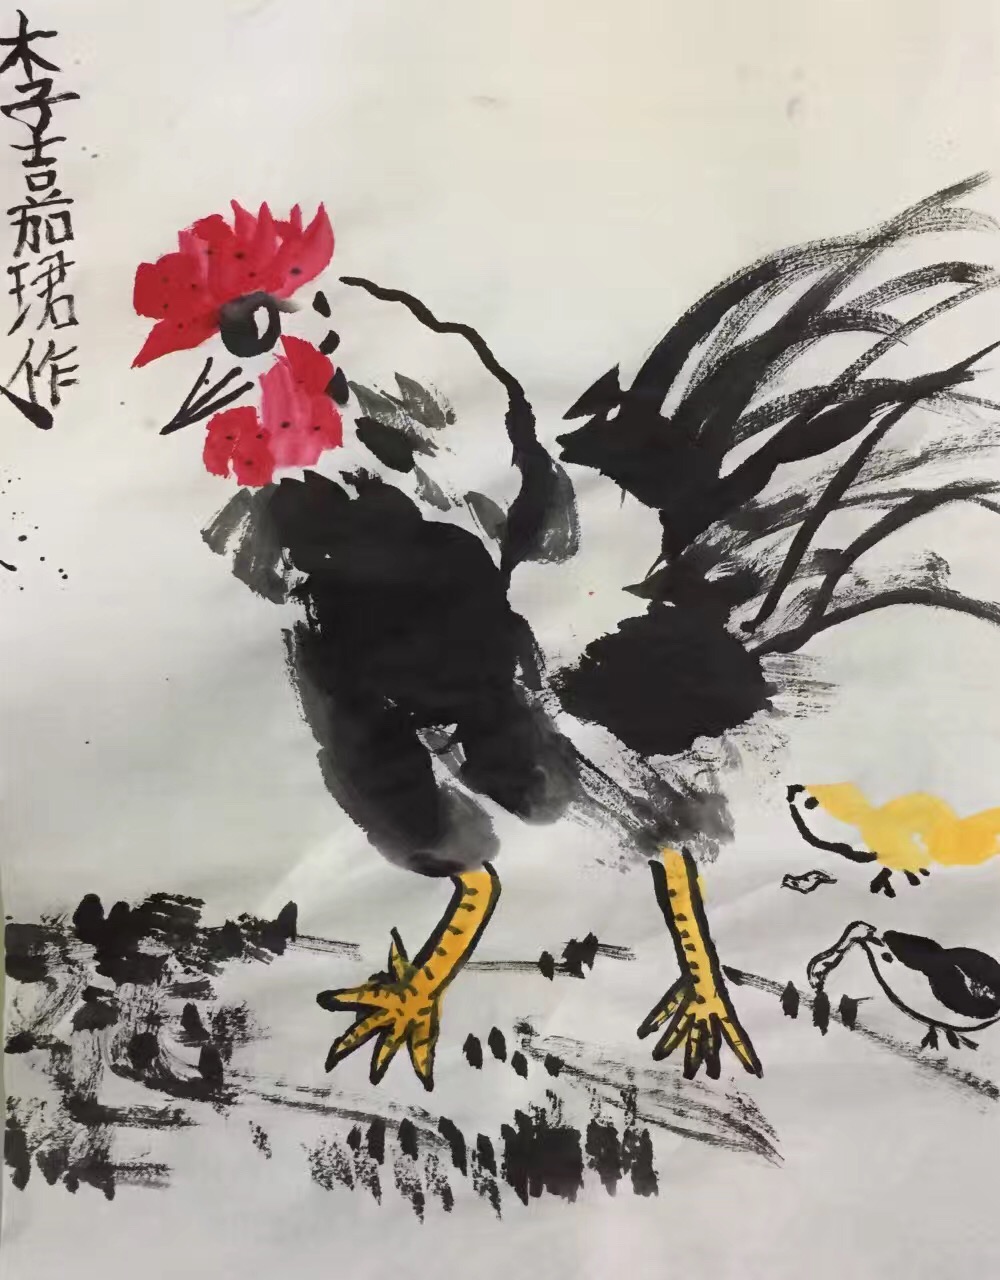 李嘉珺作